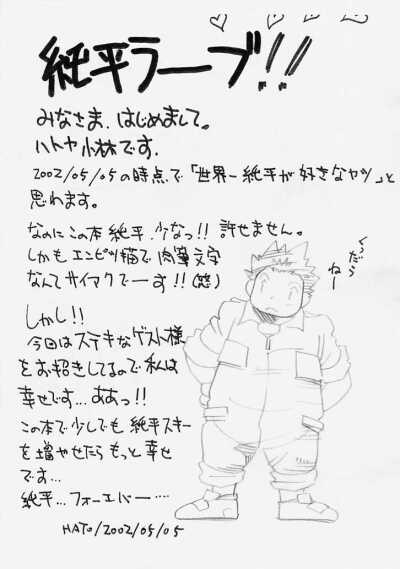 純平ラーブ!!
みなさま、はじめまして。
ハトヤ小林です。
2002/05/05の時点で「世界一純平が好きなヤツ」と
思れます。
なのにこの本純平、少なっ!! 許せません。
しかもエンピツ描で肉筆文字
なんてサイアクでーす!!(笑)
しかし!!
今回はステキなゲスト様
をお招きしてるので私は
幸せです…ああっ!!
この本で少しでも純平スキー
を増やせたらもっと幸せ
です…
純平…フォーエバー……
HATO/2002/05/05
くっだら
ねー